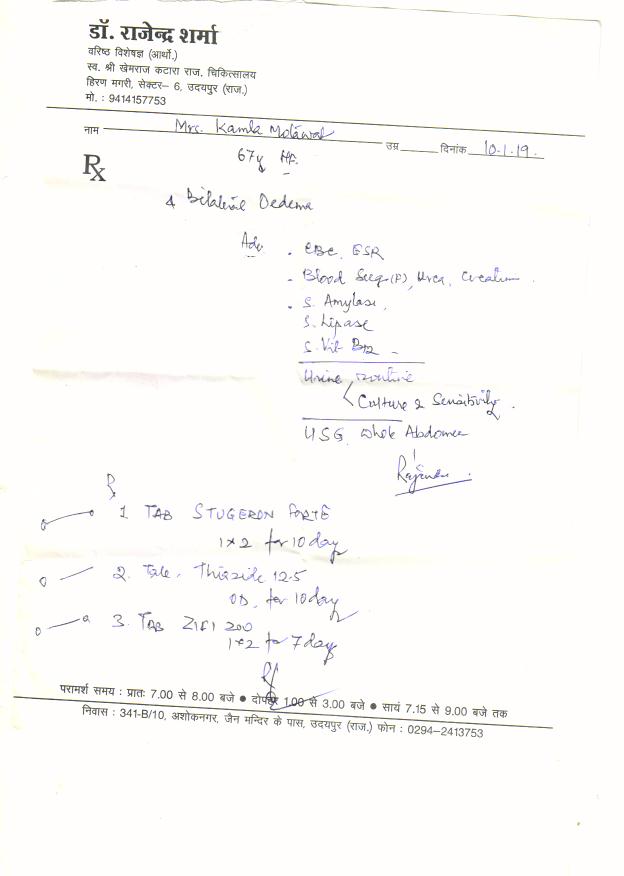 डॉ. राजेन्द्र शर्मा
वरिष्ठ विशेषज्ञ (आर्थो.)
स्व. श्री खेमराज कटारा राज. चिकित्सालय
हिरण मगरी, सेक्टर– 6, उदयपुर (राज.)
मो. : 9414157753
नाम Mrs. Kamla
उम्र दिनांक 10.1.19.
Rx
67y
Oedema
Adv
CBC, ESR
Blood (P), Urea,
S. Amylase,
S. Lipase
S. Vit B12
Urine routine
Culture & Sensitivity.
USG Whole Abdomen
R
1 TAB STUGERON FORTE
1x2 for 10 day
2. Tab. Thiazide 12.5
OD, for 10 day
3. TAB ZIFI 200
1x2 for 7 day
परामर्श समय : प्रातः 7.00 से 8.00 बजे ● दोपहर 1.00 से 3.00 बजे ● सायं 7.15 से 9.00 बजे तक
निवास : 341-B/10, अशोकनगर, जैन मन्दिर के पास, उदयपुर (राज.) फोन : 0294–2413753